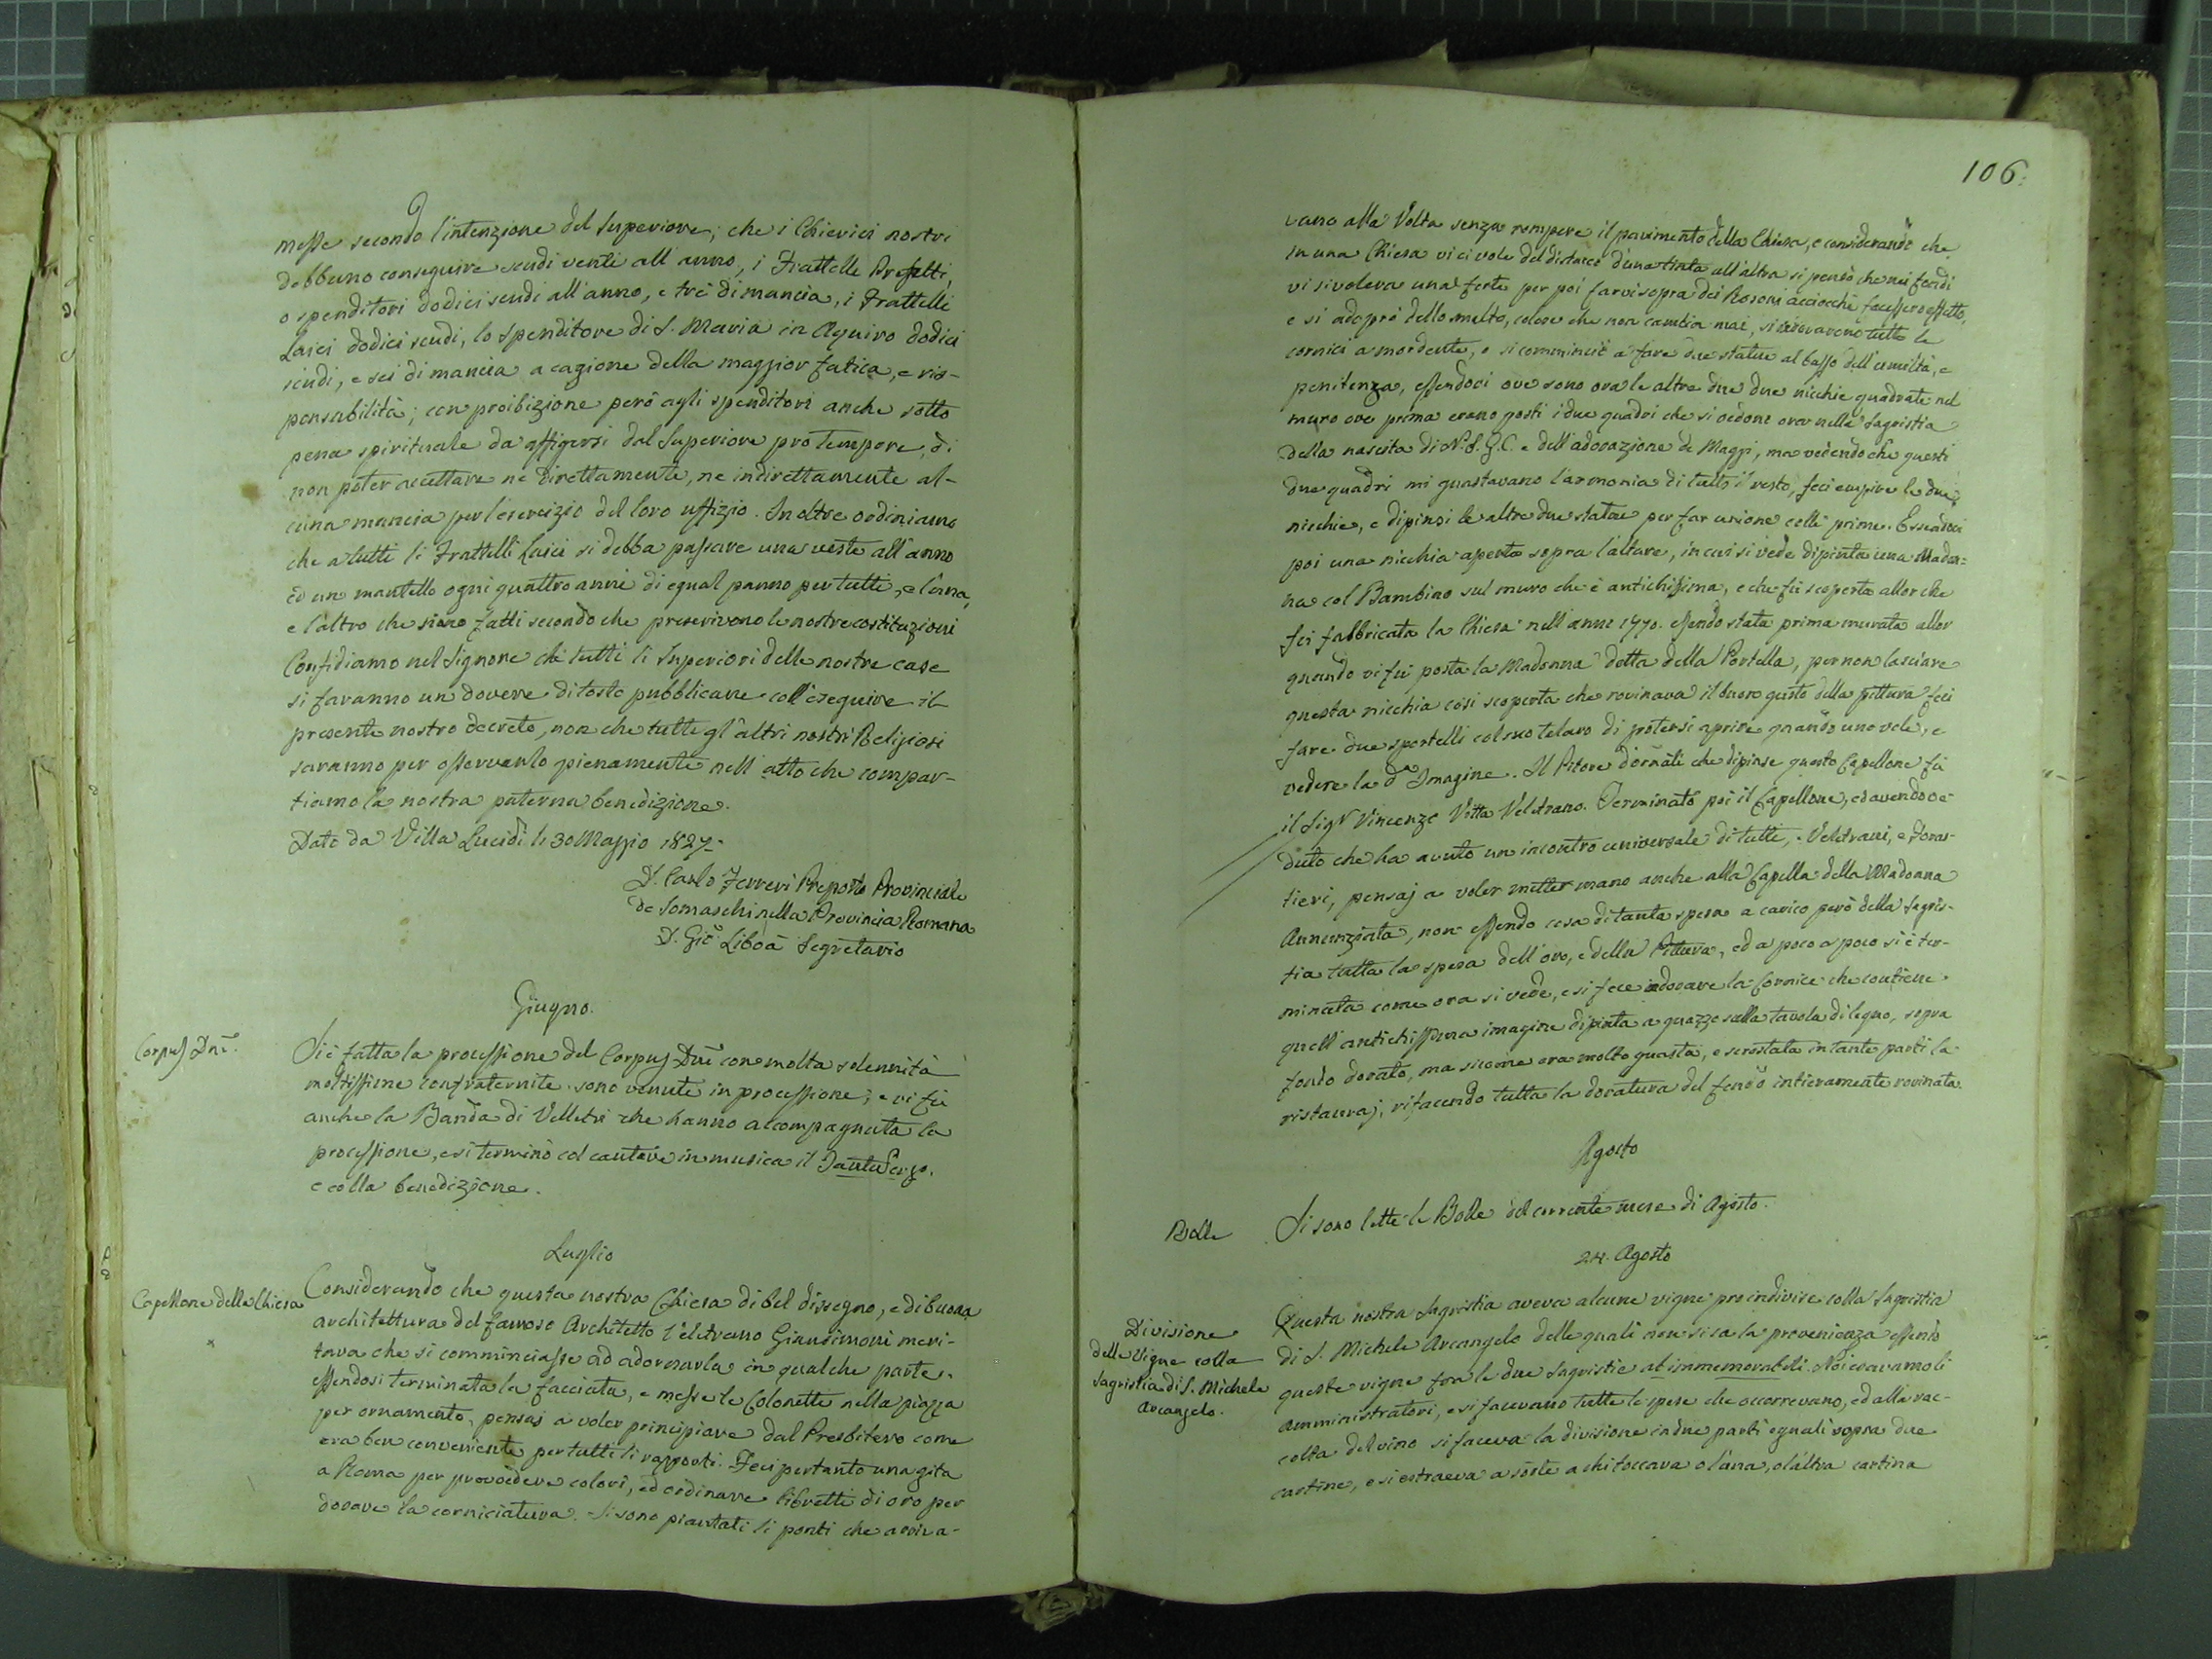 messe secondo l'intenzione del Superiore; che i Chierici nostri
debbano conseguire scudi venti all'anno, i Frattelli Prefetti,
o spenditori dodici scudi all'anno, e trè di mancia, i Frattelli
Laici dodici scudi, lo Spenditore di S. Maria in Aquiro dodici
scudi, e sei di mancia a cagione della maggior fatica, e ris-
pensabilità; con proibizione però agli spenditori anche sotto
pena spirituale da affigersi dal Superiore pro tempore, di
non poter accettare ne direttamente, ne indirettamente al-
cuna mancia per l'esercizio del loro uffizio. Inoltre ordiniamo
che a tutti li Frattelli Laici si debba passare una veste all'anno
ed un mantello ogni quattro anni di egual panno per tutti, e l'una,
e l'altro che siano fatti secondo che prescrivono le nostre costituzioni
Confidiamo nel Signore che tutti li Superiori delle nostre case
si faranno un dovere di tosto pubblicare coll'eseguire il
presente nostro decreto, non che tutti gl'altri nostri Religiosi
saranno per osservarlo pienamente nell'atto che compar-
tiamo la nostra paterna benedizione.
Dato da Villa Lucidi li 30 Maggio 1827.
D. Carlo Ferreri Preposto Provinciale
de Somaschi nella Provincia Romana
D. Gio. Liboà Segretario
Giugno.
Corpus Dni.
Si è fatta la processione del Corpus Dni con molta solennità
moltissime confraternite sono venute in processione; e vi fù
anche la Banda di Velletri che hanno accompagnata la
processione, e si terminò col cantare in musica il Tantu Ergo.
e colla benedizione.
Luglio
Capellone della Chiesa
Considerando che questa nostra Chiesa di bel dissegno, e di buona
architettura del famoso Architetto Veletrano Giansimoni meri-
tava che si comminciasse ad adornarla in qualche parte.
essendosi terminata la facciata, e messe le Colonette nella piazza
per ornamento, pensaj a voler principiare dal Presbitero come
era ben conveniente per tutti li rapporti. Feci pertanto una gita
a Roma per provvedere colori, ed ordinare libretti di oro per
dorare la corniciatura. Si sono piantati li ponti che arriva-
106.
vano alla Volta senza rompere il pavimento della Chiesa, e considerando che
in una Chiesa vi ci vole del distacco d'una tinta all'altra si pensò che nei fondi
vi si voleva una forte per poi farvi sopra dei Rosoni acciocchè facessero effetto,
e si adoprò dello smalto, colore che non cambia mai, si tutte le
cornici a mordente, e si comminciò a fare due statue al basso dell'umiltà, e
penitenza, essendoci ove sono ora le altre due due nicchie quadrate nel
muro ove prima erano posti i due quadri che si vedono ora nella Sagristia
della nascita di N. S. G. C. e dell'adorazione de Maggi, ma vedendo che questi
due quadri mi guastavano l'armonia di tutto il resto, feci empire le due
nicchie, e dipinsi le altre due statue per far unione colli prime. Essendovi
poi una nicchia aperta sopra l'altare, in cui si vede dipinta una Madon-
na col Bambino sul muro che è antichissima, e che fù scoperta allor che
fù fabbricata la Chiesa nell'anno 1770. essendo stata prima murata allor
quando vi fù posta la Madonna detta della Portella, per non lasciare
questa nicchia così scoperta che rovinava il buon gusto della pittura feci
fare due sportelli col suo telaro di potersi aprire quando uno vole, e
vedere la da Imagine. Il Pitore d'ornati che dipinse questo Capellone fù
il Sigr Vincenzo Vitta Veletrano. Terminato poi il Capellone, ed avendo ve-
duto che ha avuto un incontro universale di tutti, Veletrani, e Foras-
tieri, pensaj a voler metter mano anche alla Capella della Madonna
Annunziata, non essendo cosa di tanta spesa a carico però della Sagris-
tia tutta la spesa dell'oro, e della Pittura, ed a poco a poco si è ter-
minata come ora si vede, e si fece indorare la Cornice che contiene
quell'antichissima imagine dipinta a guazzo sulla tavola di legno, sopra
fondo dorato, ma sicome era molto guasta, e scrostata in tante parti la
ristauraj, rifacendo tutta la doratura del fondo intieramente rovinata.
Agosto
Bolle
Si sono lette le Bolle del corrente mese di Agosto.
24. Agosto
Divisione
delle Vigne colla
Sagristia di S. Michele
Arcangelo.
Questa nostra Sagristia aveva alcune vigne proindivise colla Sagristia
di S. Michele Arcangelo delle quali non si sa la provenienza essendo
queste vigne fra le due Sagristie ab immemorabili. Noi eravamo li
amministratori, e si facevano tutte le spese che occorrevano, ed alla rac-
colta del vino si faceva la divisione in due parti eguali sopra due
cartine, e si estraeva a sorte a chi toccava o l'una, o l'altra cartina